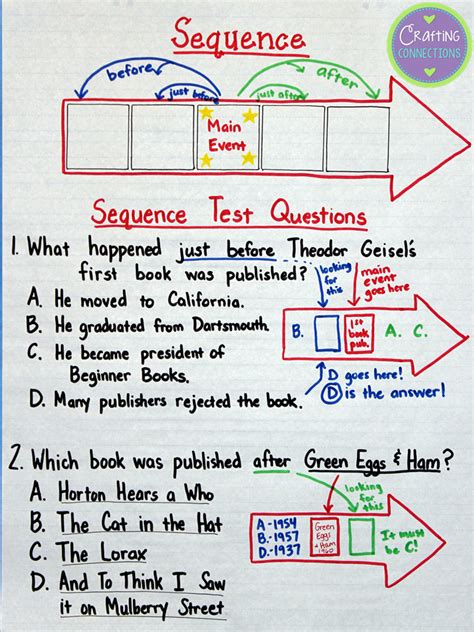 Crafting
CONNECTIONS
Sequence
before
after
just before
just after
Main
Event
Sequence Test Questions
1. What happened just before Theodor Geisel's
first book was published?
looking
for
this
main
event
goes here
A. He moved to California.
B. He graduated from Dartsmouth.
C. He became president of
Beginner Books.
D. Many publishers rejected the book.
B.
1st
book
pub.
A. C.
D goes here!
D is the answer!
2. Which book was published after Green Eggs & Ham?
A. Horton Hears a Who
B. The Cat in the Hat
C. The Lorax
D. And To Think I Saw
it on Mulberry Street
looking
for
this
A-1954
B-1957
D-1937
Green
Eggs
+ Ham
1960
It must
be C!